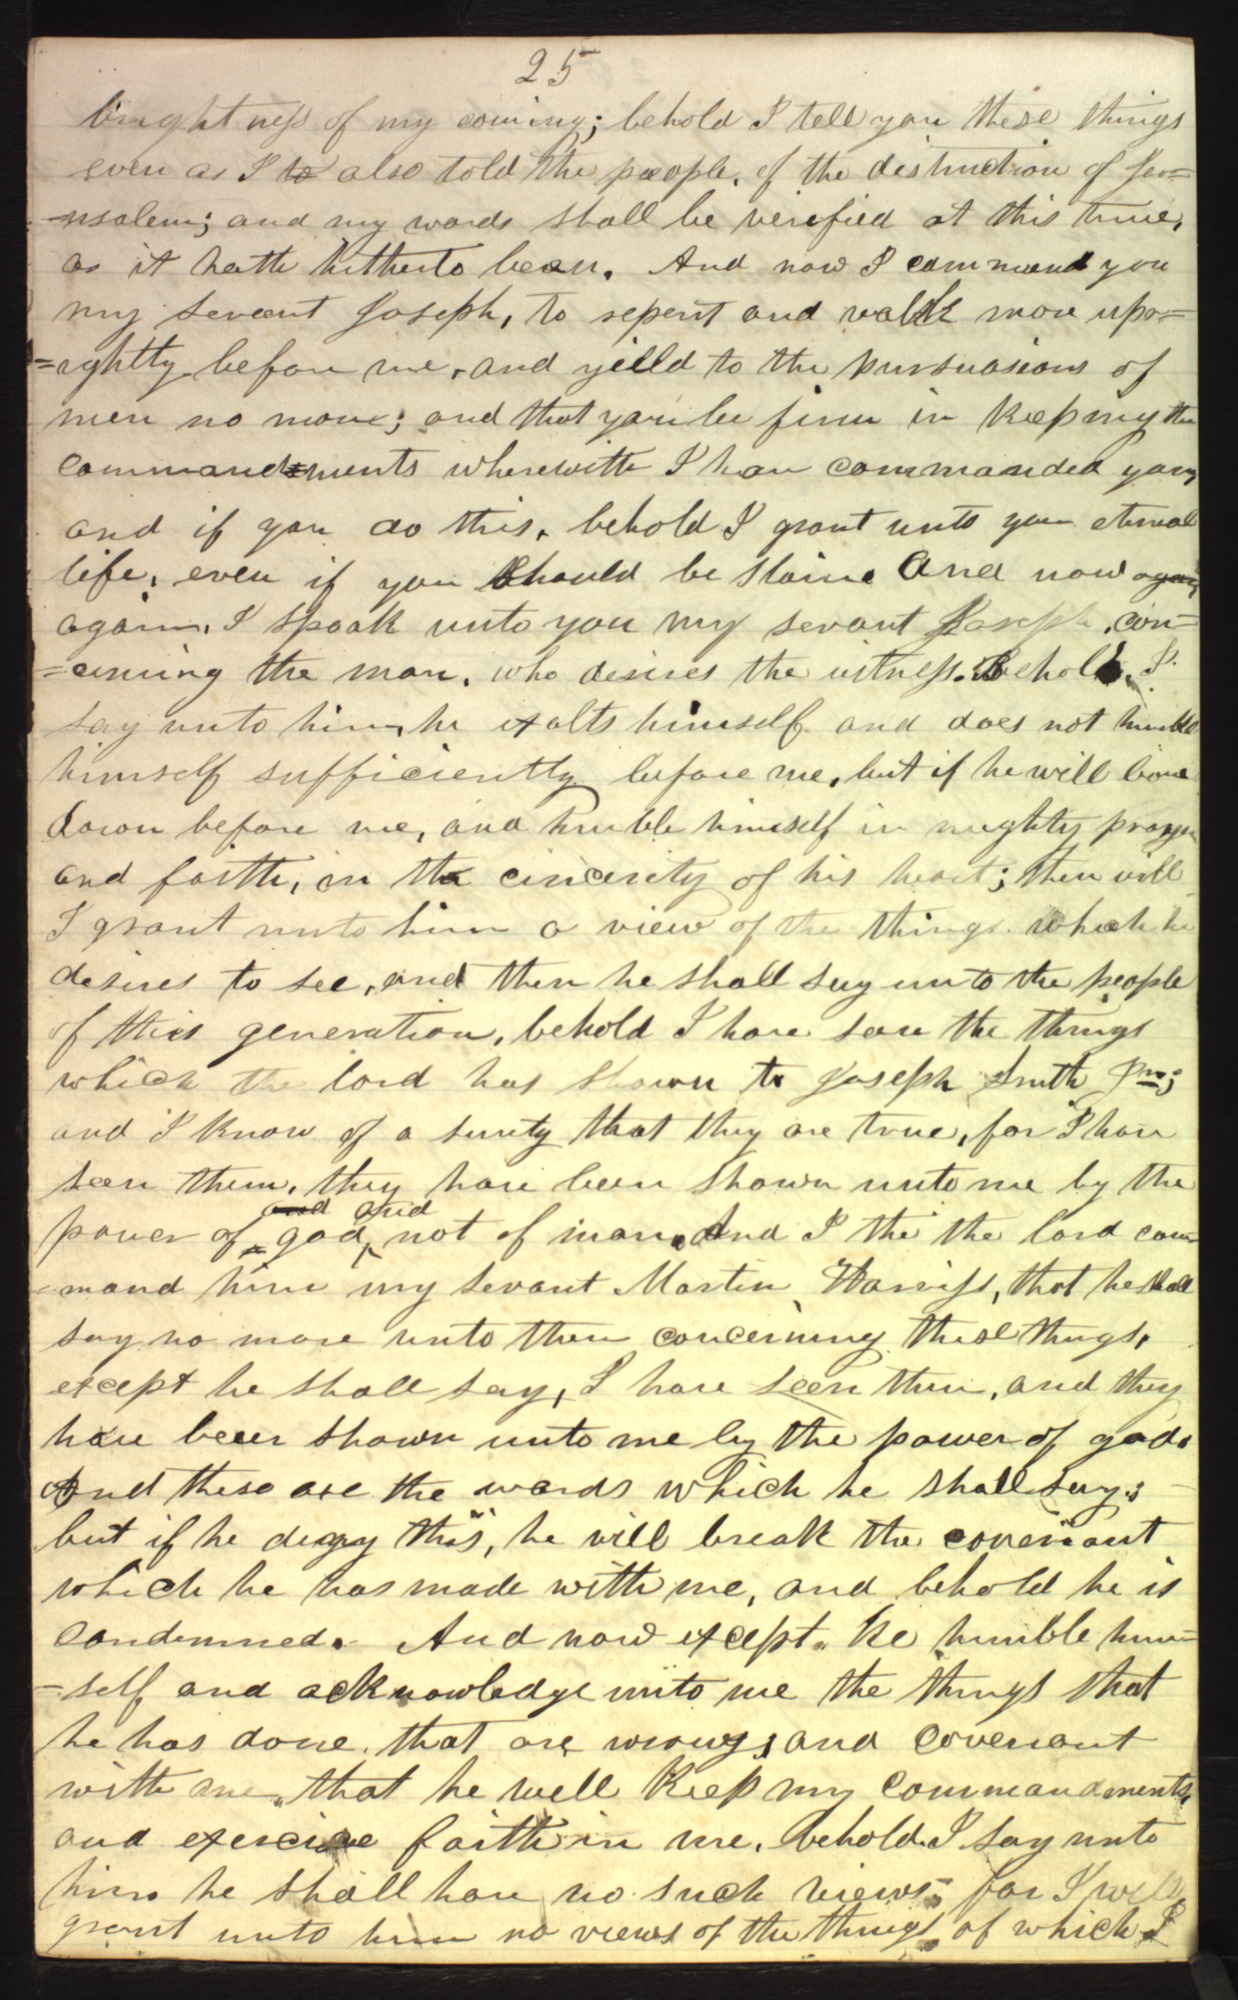 25
brightness of my coming; behold I tell you these things
even as I to also told the people, of the distruction of Jer=
=usalem; and my words shall be verified at this time,
as it hath hitherto been. And now I command you
my servent Joseph, to repent and walk more upr=
=ightly before me, and yeild to the pursuasions of
men no more; and that you be firm in Keeping the
commandments wherewith I have commanded you,
and if you do this, behold I grant unto you eternal
life, even if you should be slain. And now again
again, I speak unto you my servant Joseph, con=
=cerning the man, who desires the witness. Behold, I
say unto him, he exalts himself and does not humble
himself sufficiently before me, but if he will bow
down before me, and humble himself in mighty prayer
and faith, in the cincerity of his heart; then will
I grant unto him a view of the things which he
desires to see, and then he shall say unto the people
of this generation, behold I have seen the things
which the lord has shown to Joseph Smith Jnr;
and I Know of a surety that they are true, for I have
seen them, they have been shown unto me by the
and and
power of god, not of man. And I the the lord com
=mand him my servant Martin Harriss, that he shall
say no more unto them concerning these things,
except he shall say, I have seen them, and they
have been shown unto me by the power of god.
And these are the words which he shall say;
but if he deny this, he will break the covenant
which he has made with me, and behold he is
condemned. And now except he humble him=
=self and acknowledge unto me the things that
he has done, that are wrong; and covenant
with me, that he will Keep my commandments,
and exercise faith in me, behold I say unto
him he shall have no such views; for I will
grant unto him no views of the things of which I